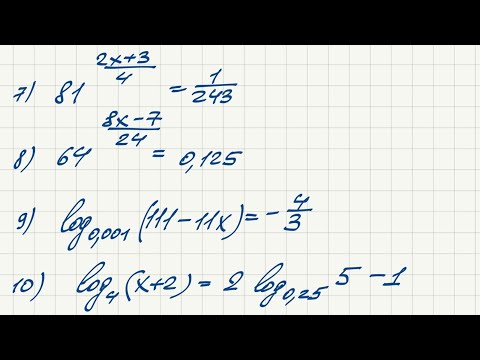 7) 81^((2x+3)/4) = 1/243
8) 64^((8x-7)/24) = 0,125
9) log_0,001 (111-11x) = -4/3
10) log_4 (x+2) = 2 log_0,25 5 -1